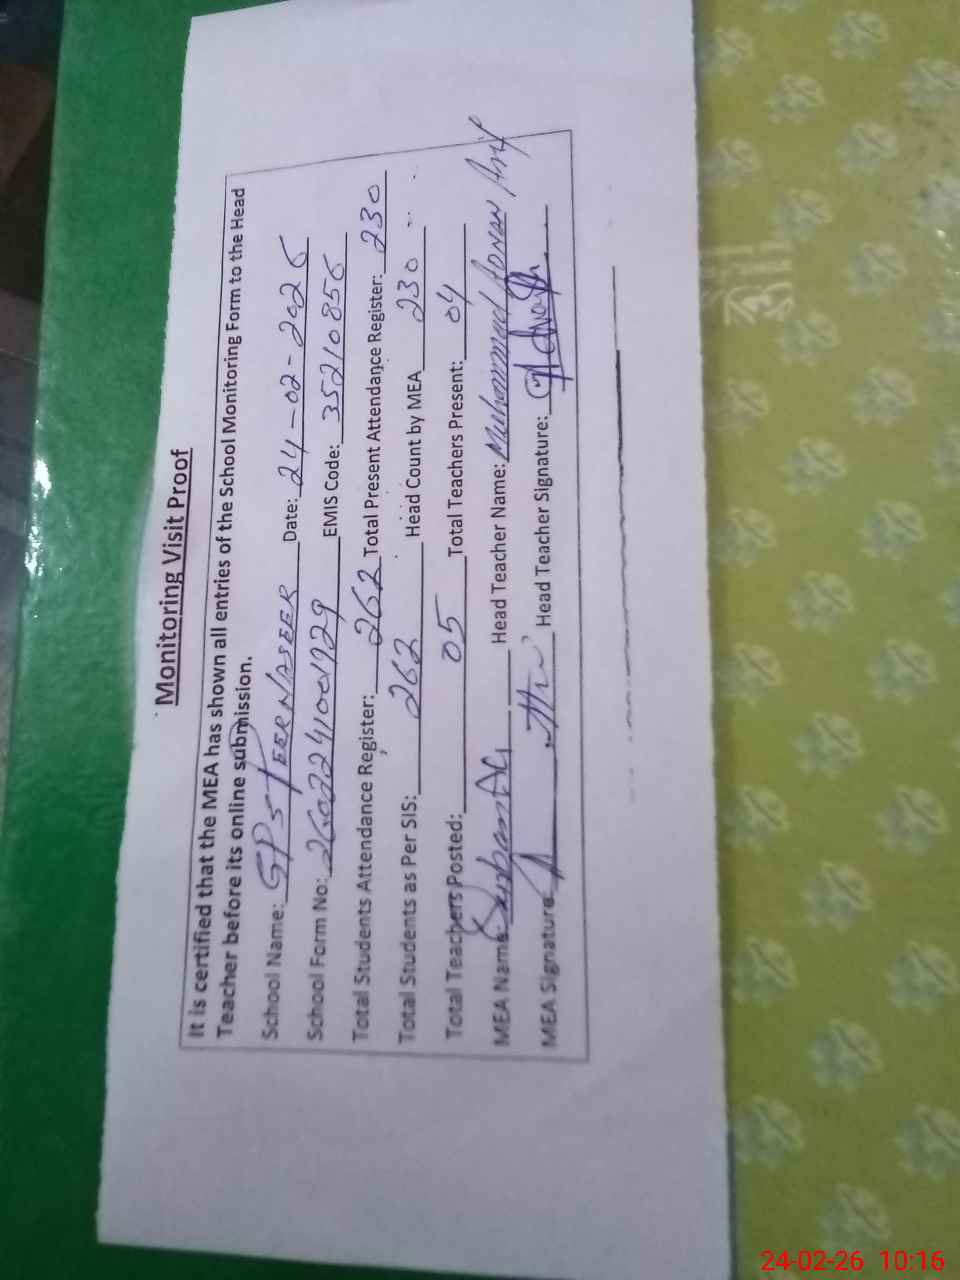 Monitoring Visit Proof
It is certified that the MEA has shown all entries of the School Monitoring Form to the Head
Teacher before its online submission.
School Name: GPS PEER NASEER Date: 24-02-2026
School Form No: 2602241001929 EMIS Code: 35210856
Total Students Attendance Register: 262 Total Present Attendance Register: 230
Total Students as Per SIS: 262 Head Count by MEA 230
Total Teachers Posted: 05 Total Teachers Present: 04
MEA Name: Head Teacher Name: Muhammad Adnan Arif
MEA Signature Head Teacher Signature:
24-02-26 10:16